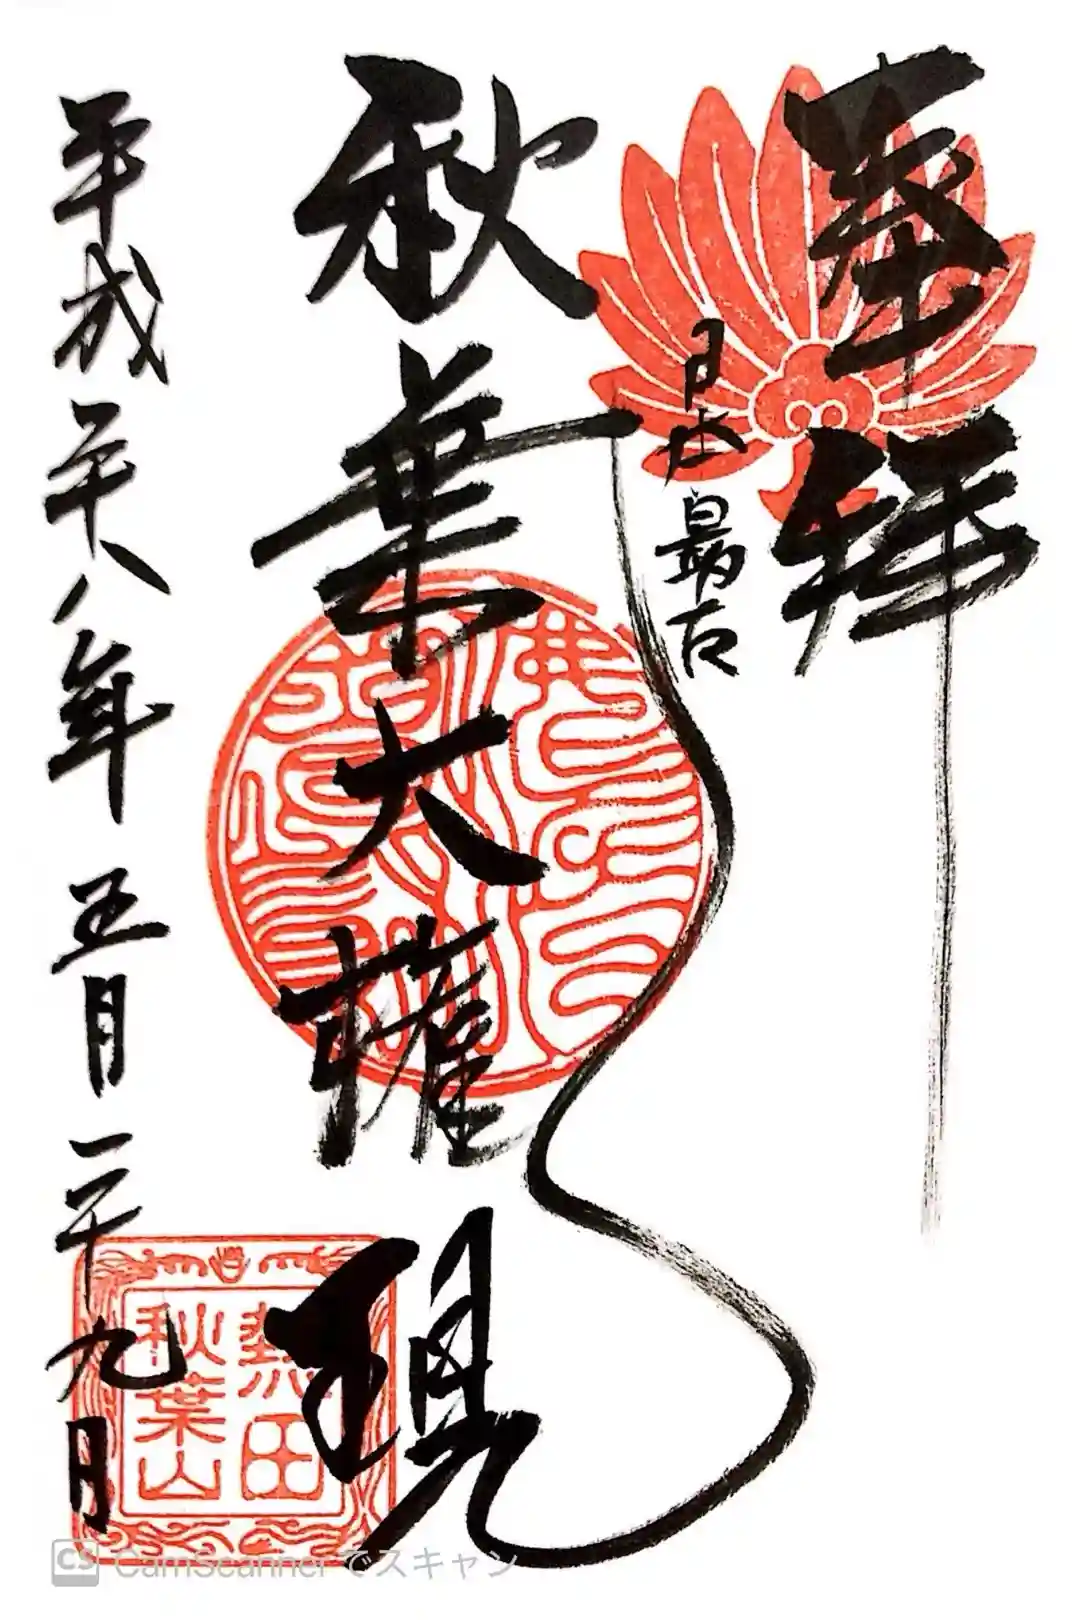 奉拝
日本最古
秋葉大権現
平成二十八年五月二十九日
熱田
秋葉山
CS CamScannerでスキャン